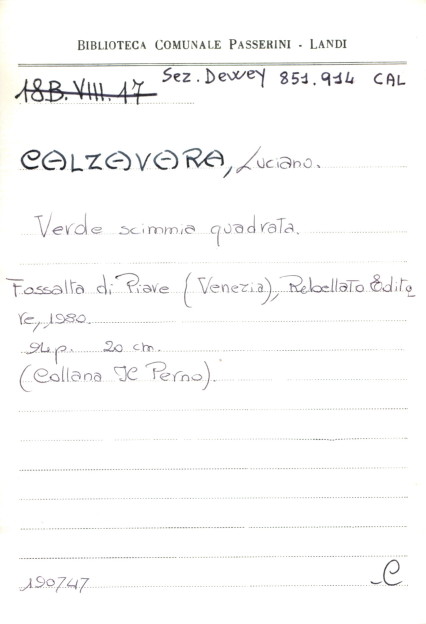 BIBLIOTECA COMUNALE PASSERINI - LANDI
18B.VIII.17 Sez. Dewey 851.914 CAL
CALZAVARA, Luciano.
Verde scimmia quadrata.
Fossalta di Piave (Venezia), Rebellato Edito
re, 1980.
94p. 20 cm.
(Collana Il Perno).
190747
C